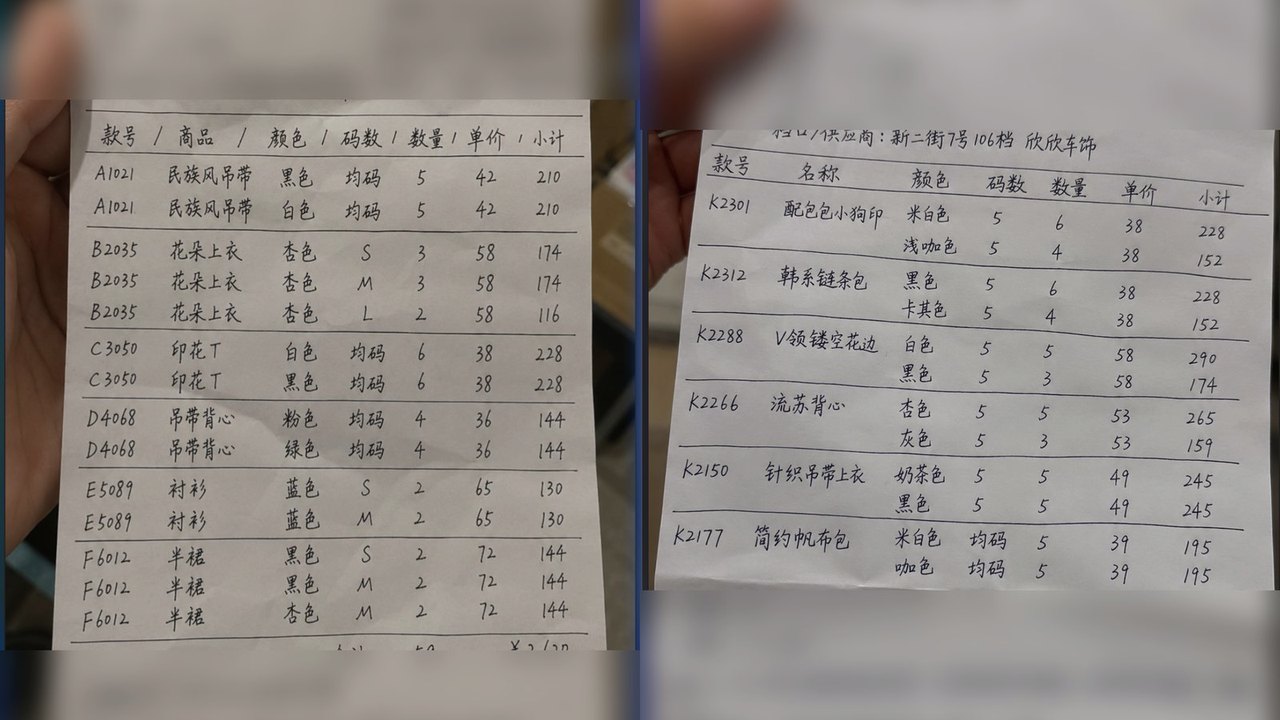 款号 / 商品 / 颜色 / 码数 / 数量 / 单价 / 小计
A1021 民族风吊带 黑色 均码 5 42 210
A1021 民族风吊带 白色 均码 5 42 210
B2035 花朵上衣 杏色 S 3 58 174
B2035 花朵上衣 杏色 M 3 58 174
B2035 花朵上衣 杏色 L 2 58 116
C3050 印花T 白色 均码 6 38 228
C3050 印花T 黑色 均码 6 38 228
D4068 吊带背心 粉色 均码 4 36 144
D4068 吊带背心 绿色 均码 4 36 144
E5089 衬衫 蓝色 S 2 65 130
E5089 衬衫 蓝色 M 2 65 130
F6012 半裙 黑色 S 2 72 144
F6012 半裙 黑色 M 2 72 144
F6012 半裙 杏色 M 2 72 144
/供应商:新二街7号106档 欣欣车饰
款号 名称 颜色 码数 数量 单价 小计
K2301 配包包小狗印 米白色 5 6 38 228
浅咖色 5 4 38 152
K2312 韩系链条包 黑色 5 6 38 228
卡其色 5 4 38 152
K2288 V领镂空花边 白色 5 5 58 290
黑色 5 3 58 174
K2266 流苏背心 杏色 5 5 53 265
灰色 5 3 53 159
K2150 针织吊带上衣 奶茶色 5 5 49 245
黑色 5 5 49 245
K2177 简约帆布包 米白色 均码 5 39 195
咖色 均码 5 39 195